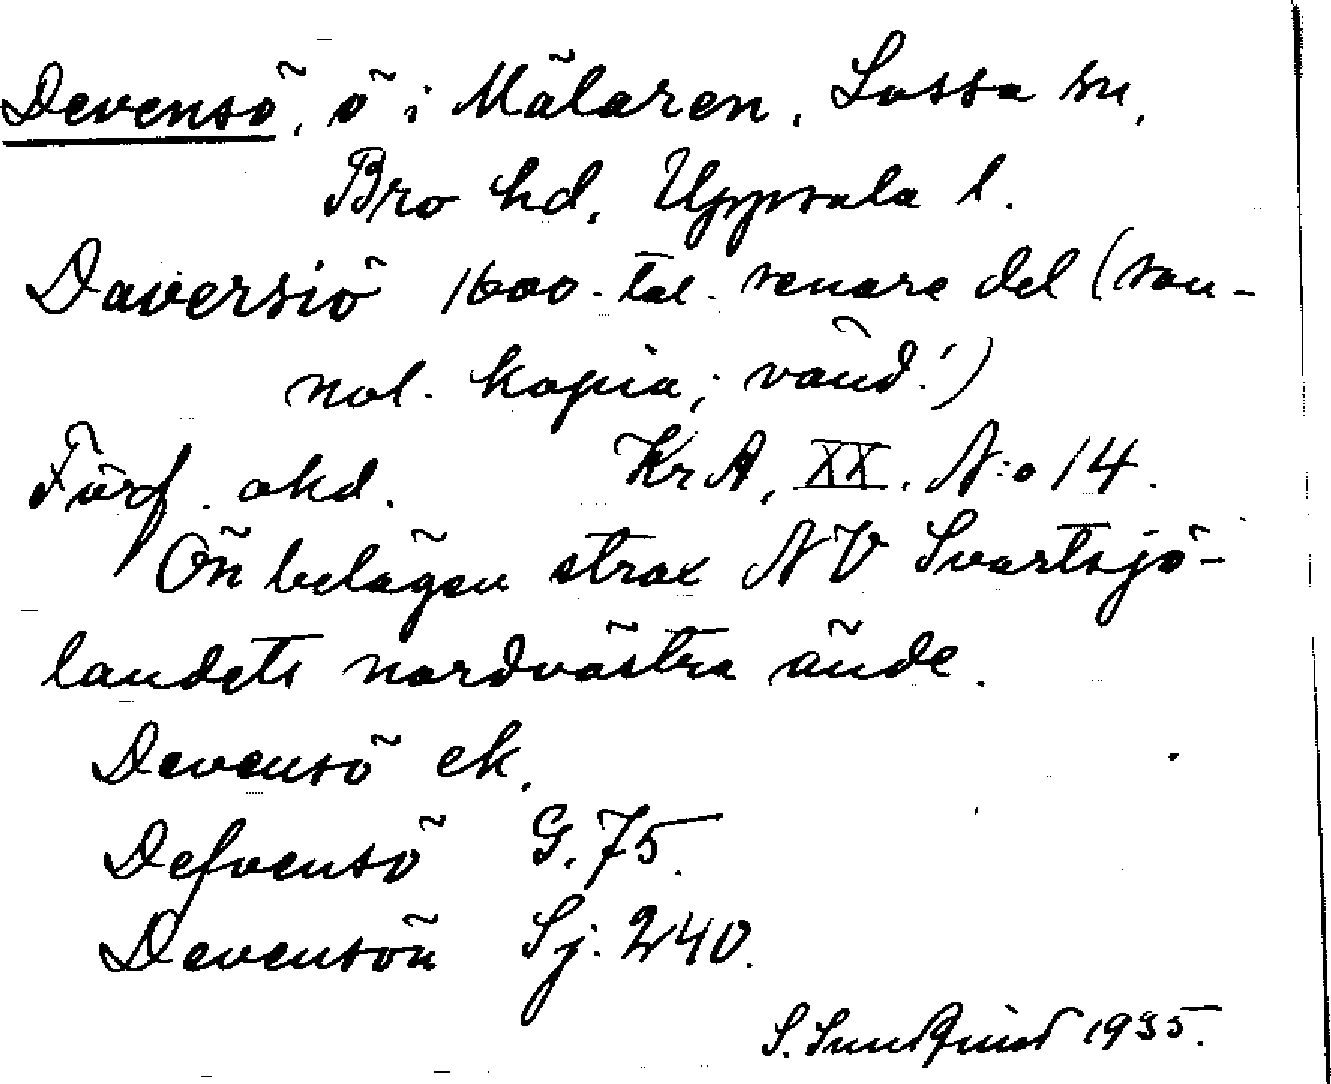 Devensö, ö i Mälaren, Lossa sn,
Bro hd, Uppsala l.
Daversiö 1600-tal. senare del (san-
nol. kopia; vänd!)
Förf. okd. KrA, XX, N:o 14.
Ön belägen strax NV Svartsjö-
landets nordvästra ände.
Devensö ek.
Defvensö G. 75.
Devensön Sj. 240.
S. Sundqvist 1935.